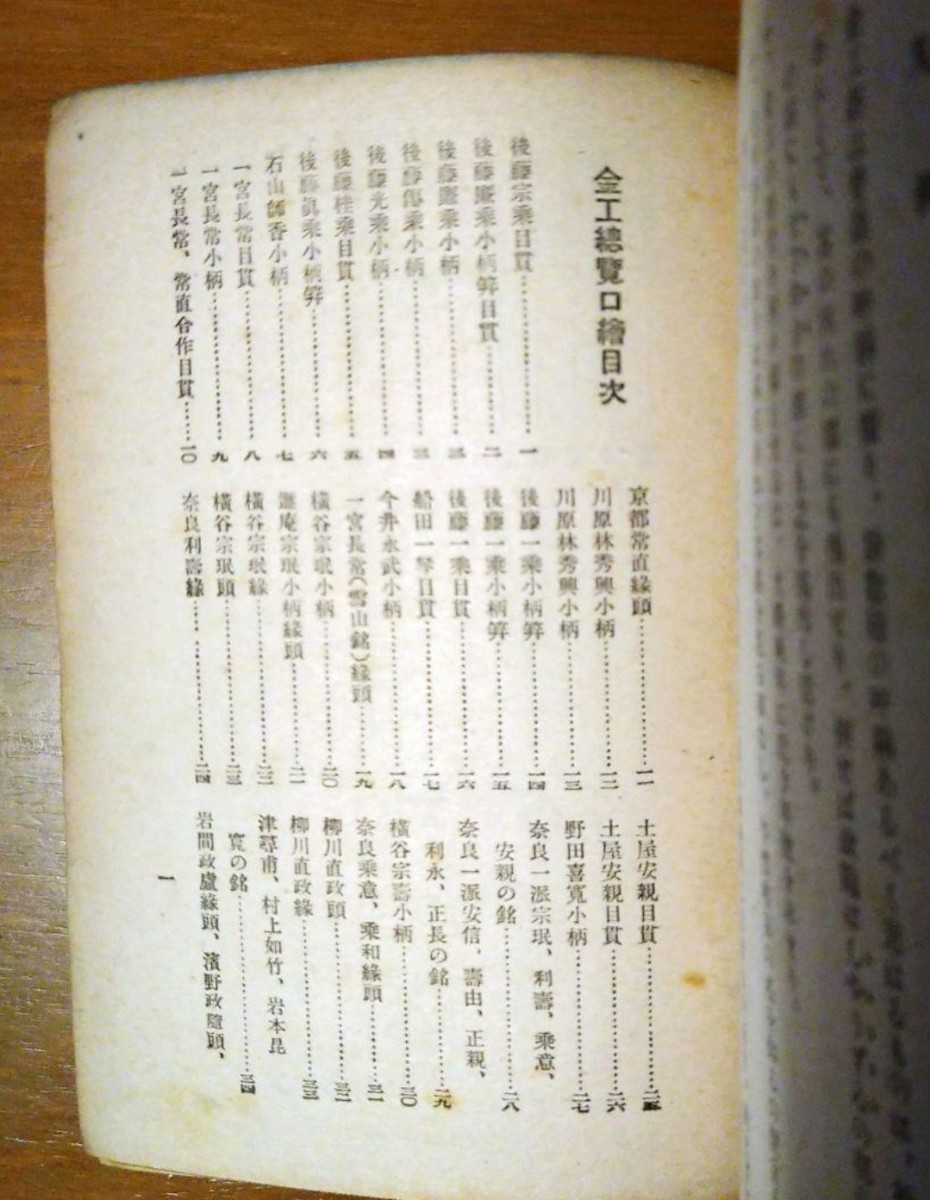 金工總覽口繪目次
後藤宗乘目貫……一
後藤乘小柄笄目貫……二
後藤乘小柄……三
後藤乘小柄……三
後藤光乘小柄……四
後藤桂乘目貫……五
後藤眞乘小柄笄……六
石山師香小柄……七
一宮長常目貫……八
一宮長常小柄……九
一宮長常、常直合作目貫……一〇
京都常直緣頭……一一
川原林秀興小柄……一二
川原林秀興小柄……一三
後藤一乘小柄笄……一四
後藤一乘小柄笄……一五
後藤一乘目貫……一六
船田一琴目貫……一七
今井永武小柄……一八
一宮長常(雪山銘)緣頭……一九
橫谷宗珉小柄……二〇
遯庵宗珉小柄緣頭……二一
橫谷宗珉緣……二二
橫谷宗珉頭……二三
奈良利壽緣……二四
土屋安親目貫……二五
土屋安親目貫……二六
野田喜寬小柄……二七
奈良一派宗珉、利壽、乘意、
安親の銘……二八
奈良一派安信、壽由、正親、
利永、正長の銘……二九
橫谷宗壽小柄……三〇
奈良乘意、乘和緣頭……三一
柳川直政頭……三二
柳川直政緣……三三
津尋甫、村上如竹、岩本昆
寬の銘……三四
岩間政盧緣頭、濱野政隨頭、
一